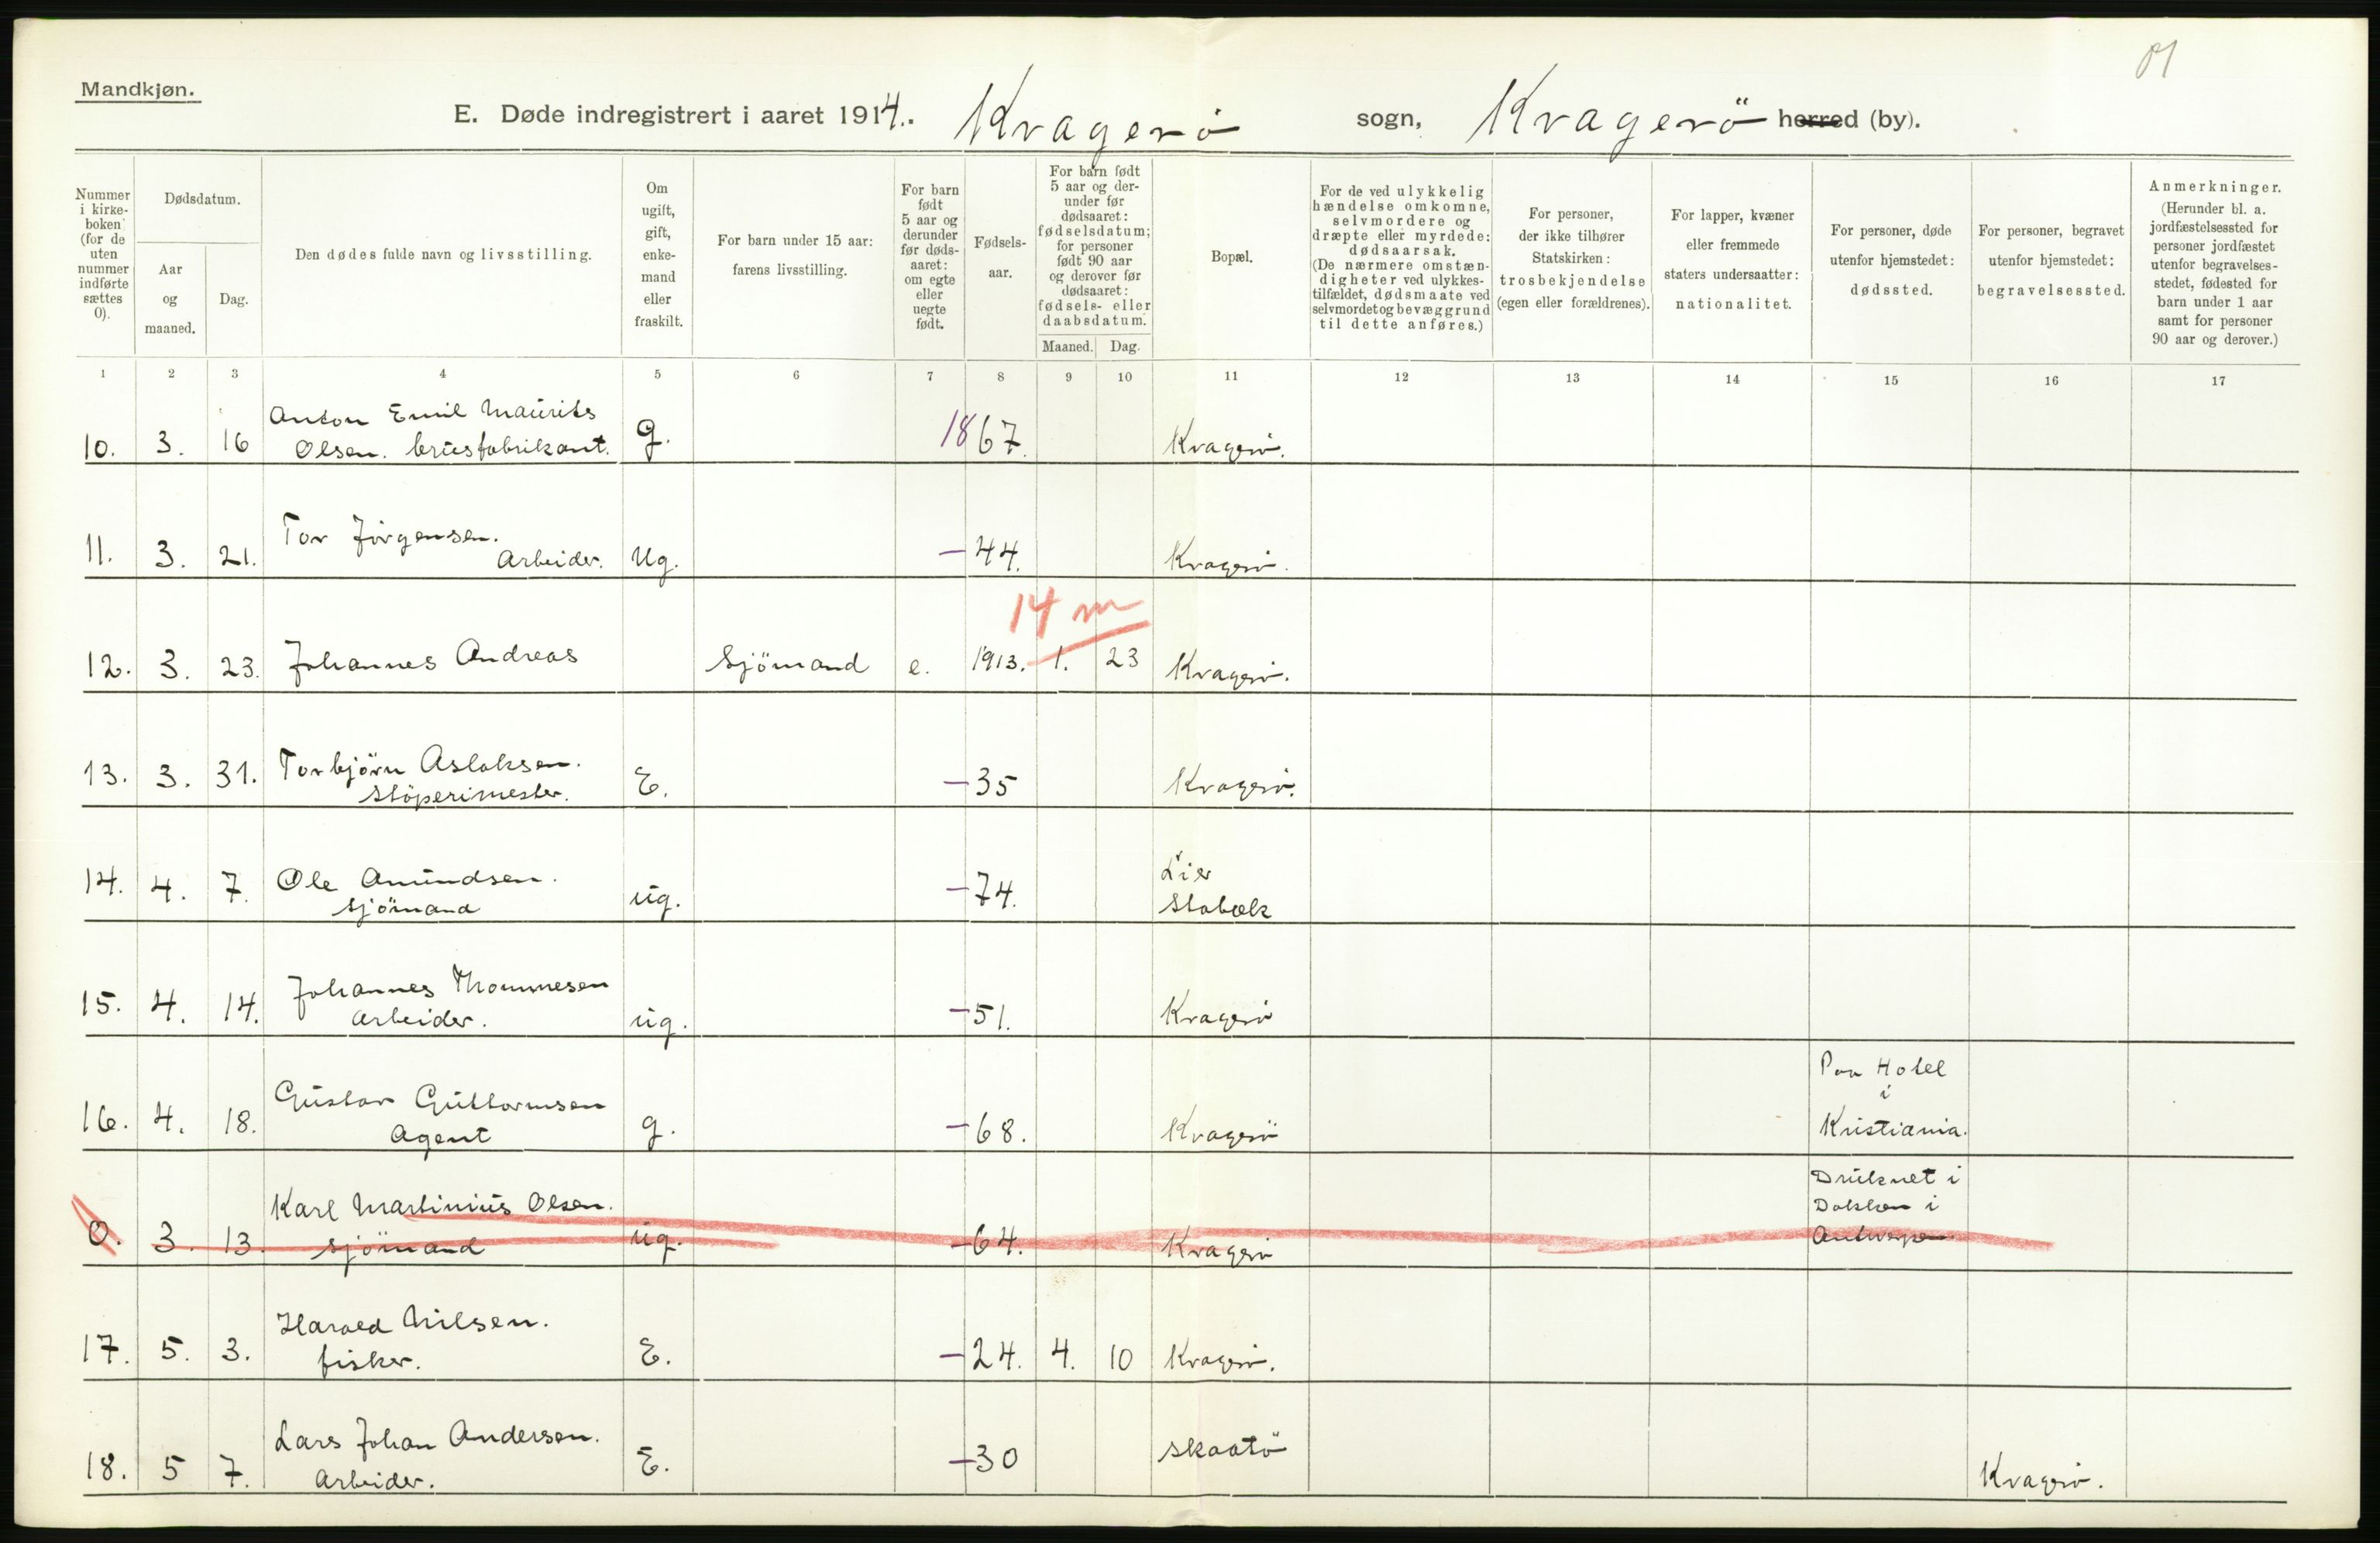 Mandkjøn.
E. Døde indregistrert i aaret 1914. Kragerø sogn, Kragerö herred (by).
Nummer i kirke-boken (for de uten nummer indførte sættes 0).
Dødsdatum.
Aar og maaned.
Dag.
Den dødes fulde navn og livsstilling.
Om ugift, gift, enke-mand eller fraskilt.
For barn under 15 aar: farens livsstilling.
For barn født 5 aar og derunder før døds-aaret: om egte eller uegte født.
Fødsels-aar.
For barn født 5 aar og der-under før dødsaaret: fødselsdatum; for personer født 90 aar og derover før dødsaaret: fødsels- eller daabsdatum.
Maaned. Dag.
Bopæl.
For de ved ulykkelig hændelse omkomne, selvmordere og dræpte eller myrdede: dødsaarsak. (De nærmere omstæn-digheter ved ulykkes-tilfældet, dødsmaate ved selvmordet og bevæggrund til dette anføres.)
For personer, der ikke tilhører Statskirken: trosbekjendelse (egen eller forældrenes).
For lapper, kvæner eller fremmede staters undersaatter: nationalitet.
For personer, døde utenfor hjemstedet: dødssted.
For personer, begravet utenfor hjemstedet: begravelsessted.
Anmerkninger. (Herunder bl. a. jordfæstelsessted for personer jordfæstet utenfor begravelses-stedet, fødested for barn under 1 aar samt for personer 90 aar og derover.)
1 2 3 4 5 6 7 8 9 10 11 12 13 14 15 16 17
Anton Emil Maurits
10. 3. 16 Olsen. brusfabrikant. g. 1867. Kragerø.
Tor Jörgensen.
11. 3. 21. Arbeider. Ug. - 44. Kragerø.
14 m
12. 3. 23. Johannes Andreas Sjömand e. 1913. 1. 23 Kragerø.
13. 3. 31. Torbjörn Aslaksen.
Stöperimester. E. - 35 Kragerø.
14. 4. 7. Ole Amundsen. Lier
Sjömand ug. - 74. Stabæk
15. 4. 14. Johannes Thommesen
Arbeider. ug. - 51. Kragerø
Paa Hotel
i
16. 4. 18. Gustav Guttormsen
Agent g. - 68. Kragerö Kristiania.
Druknet i
Karl Martinius Olsen. Dokken i
0. 3. 13. Sjömand ug. - 64. Kragerø Antwerpen
Harald Nilsen.
17. 5. 3. fisker. E. - 24. 4. 10 Kragerø.
Lars Johan Andersen. Skaatö
18. 5 7. Arbeider. E. - 30 Kragerø.